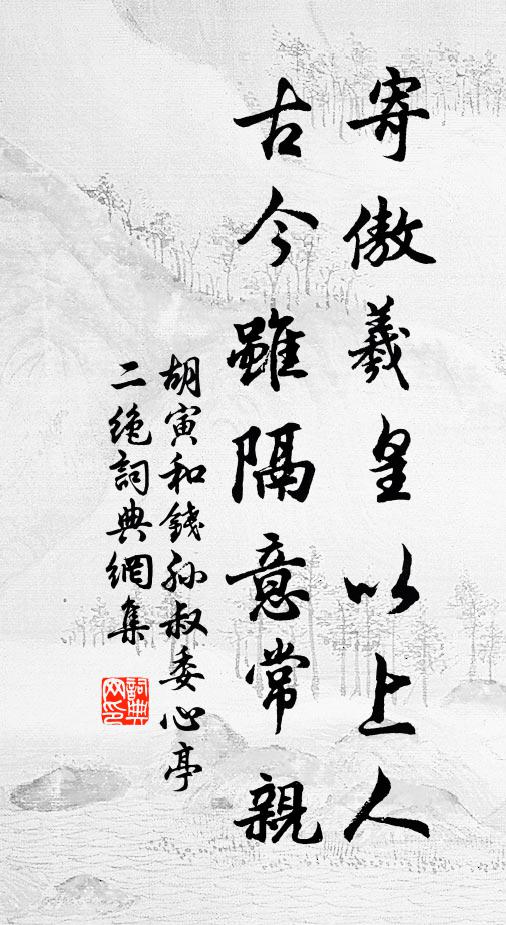 寄傲羲皇以上人
古今雖隔意常親
胡寅和錢孙叔委心亭
二绝詞典網集
詞典网印